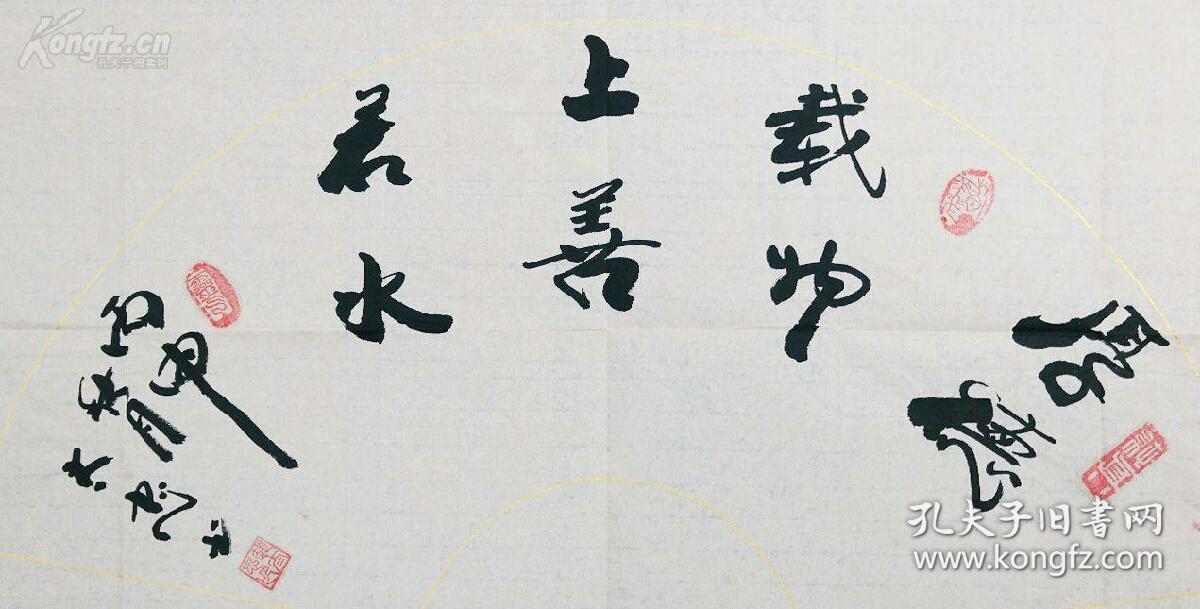 厚德
载物
上善
若水
丙申
Kongfz.cn
孔夫子拍卖网
孔夫子旧书网
www.kongfz.com